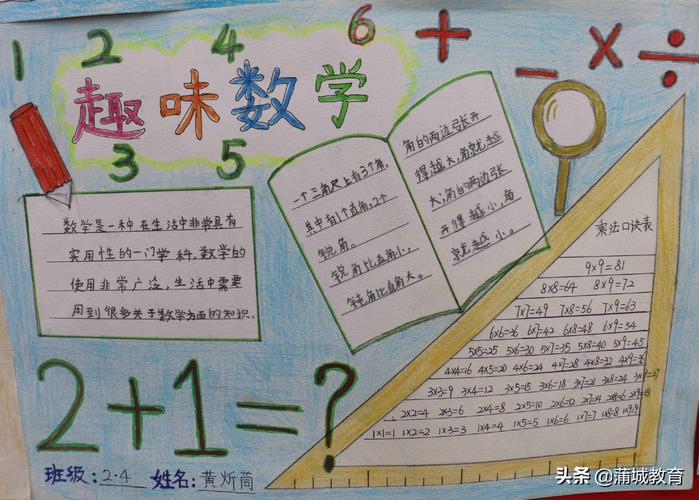 1 2 4 6 + - × ÷
趣味数学
3 5
数学是一种在生活中非常具有
实用性的一门学科,数学的
使用非常广泛,生活中需要
用到很多关于数学方面的知识.
一个三角尺上有3个角,
其中有1个直角,2个
锐角。
锐角比直角小,
钝角比直角大。
角的两边张开
得越大,角就越
大;角的两边张
开得越小,角
就越小。
乘法口诀表
9×9=81
8×8=64 8×9=72
7×7=49 7×8=56 7×9=63
6×6=36 6×7=42 6×8=48 6×9=54
5×5=25 5×6=30 5×7=35 5×8=40 5×9=45
4×4=16 4×5=20 4×6=24 4×7=28 4×8=32 4×9=36
3×3=9 3×4=12 3×5=15 3×6=18 3×7=21 3×8=24 3×9=27
2×2=4 2×3=6 2×4=8 2×5=10 2×6=12 2×7=14 2×8=16 2×9=18
1×1=1 1×2=2 1×3=3 1×4=4 1×5=5 1×6=6 1×7=7 1×8=8 1×9=9
2+1=?
班级:2.4 姓名:黄炘茼
头条@蒲城教育